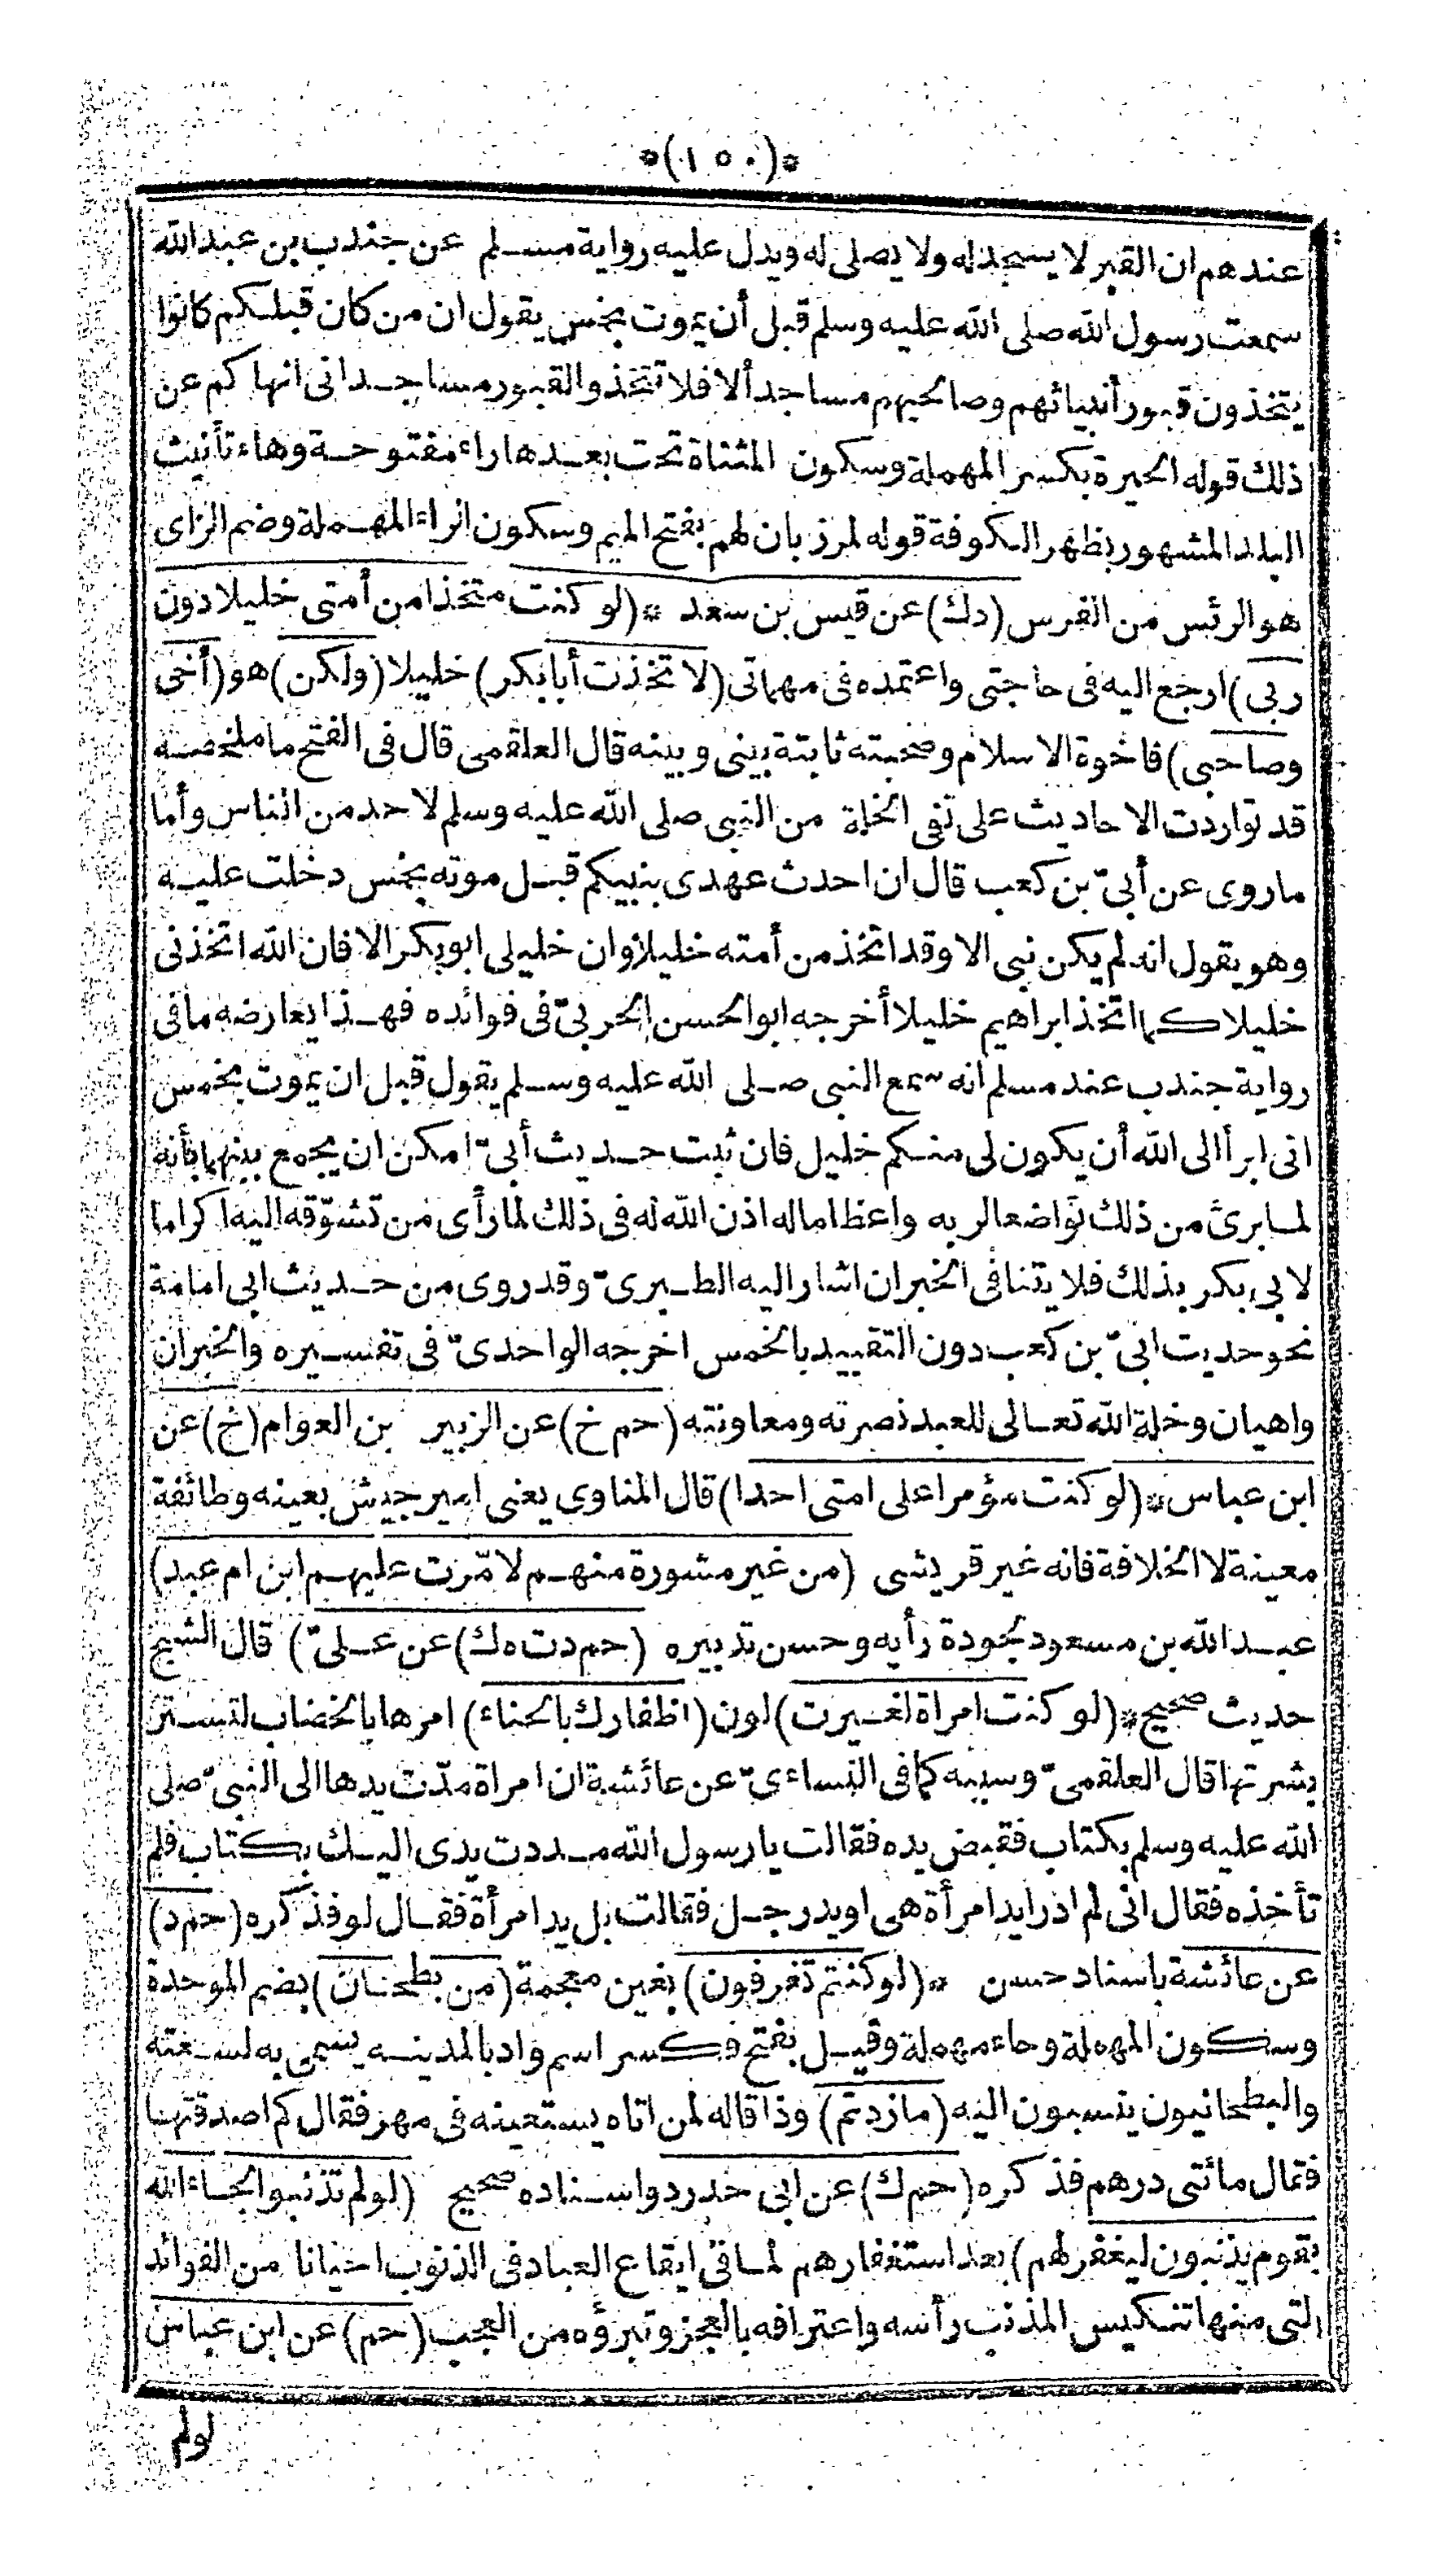 *(١٥٠)*
عندهم ان القبر لا يسجد له ولا يصلى له ويدل عليه رواية مسلم عن جندب بن عبد الله
سمعت رسول الله صلى الله عليه وسلم قبل أن يموت بخمس يقول ان من كان قبلكم كانوا
يتخذون قبور أنبيائهم وصالحيهم مساجد ألا فلا تتخذوا القبور مساجد انى انهاكم عن
ذلك قوله الحيرة بكسر المهملة وسكون المثناة تحت بعدها راء مفتوحة وهاء تأنيث
البلد المشهور بظهر الكوفة قوله لمرزبان لهم بفتح الميم وسكون الراء المهملة وضم الزاى
هو الرئس من الفرس (دك) عن قيس بن سعد * (لو كنت متخذا من أمتى خليلا دون
ربى) ارجع اليه فى حاجتى واعتمده فى مهماتى (لا تخذت أبا بكر) خليلا (ولكن) هو (أخى
وصاحبى) فاخوة الاسلام وصحبته ثابتة بينى وبينه قال العلقمى قال فى الفتح ما ملخصه
قد تواردت الاحاديث على نفى الخلة من النبى صلى الله عليه وسلم لاحد من الناس وأما
ما روى عن أبىّ بن كعب قال ان احدث عهدى بنبيكم قبل موته بخمس دخلت عليه
وهو يقول انه لم يكن نبى الا وقد اتخذ من أمته خليلا وان خليلى ابو بكر الا فان الله اتخذنى
خليلا كما اتخذ ابراهيم خليلا أخرجه ابو الحسن الحربىّ فى فوائده فهذا يعارضه ما فى
رواية جندب عند مسلم انه سمع النبى صلى الله عليه وسلم يقول قبل ان يموت بخمس
انى ابرأ الى الله أن يكون لى منكم خليل فان ثبت حديث أبىّ امكن ان يجمع بينهما بأنه
لما برئ من ذلك تواضعا لربه واعظاما له اذن الله له فى ذلك لما رأى من تشوّقه اليه اكراما
لابى بكر بذلك فلا يتنافى الخبران اشار اليه الطبرىّ وقد روى من حديث ابى امامة
نحو حديث ابىّ بن كعب دون التقييد بالخمس اخرجه الواحدىّ فى تفسيره والخبران
واهيان وخلة الله تعالى للعبد نصرته ومعاونته (حم خ) عن الزبير بن العوام (خ) عن
ابن عباس * (لو كنت مؤمرا على امتى احدا) قال المناوى يعنى امير جيش بعينه وطائفة
معينة لا الخلافة فانه غير قريشى (من غير مشورة منهم لامّرت عليهم ابن ام عبد)
عبد الله بن مسعود لجودة رأيه وحسن تدبيره (حم دت ه ك) عن علىّ) قال الشيخ
حديث صحيح * (لو كنت امراة لغيرت) لون (اظفارك بالحناء) امرها بالخضاب لتستر
بشرتها قال العلقمىّ وسببه كما فى النساءىّ عن عائشة ان امراة مدّت يدها الى النبىّ صلى
الله عليه وسلم بكتاب فقبض يده فقالت يا رسول الله مددت يدى اليك بكتاب فلم
تأخذه فقال انى لم ادر ايد امرأة هى او يد رجل فقالت بل يد امرأة فقال لو فذكره (حم د)
عن عائشة باسناد حسن * (لو كنتم تغرفون) بغين معجمة (من بطحان) بضم الموحدة
وسكون المهملة وحاء مهملة وقيل بفتح فكسر اسم واد بالمدينه يسمى به لسعته
والبطحانيون ينسبون اليه (ما زدتم) وذا قاله لمن اتاه يستعينه فى مهر فقال كم اصدقتها
فقال مائتى درهم فذكره (حم ك) عن ابى حدرد واسناده صحيح (لو لم تذنبوا لجاء الله
بقوم يذنبون ليغفر لهم) بعد استغفارهم لما فى ايقاع العباد فى الذنوب احيانا من الفوائد
التى منها تنكيس المذنب رأسه واعترافه بالعجز وتبرؤه من العجب (حم) عن ابن عباس
لو لم